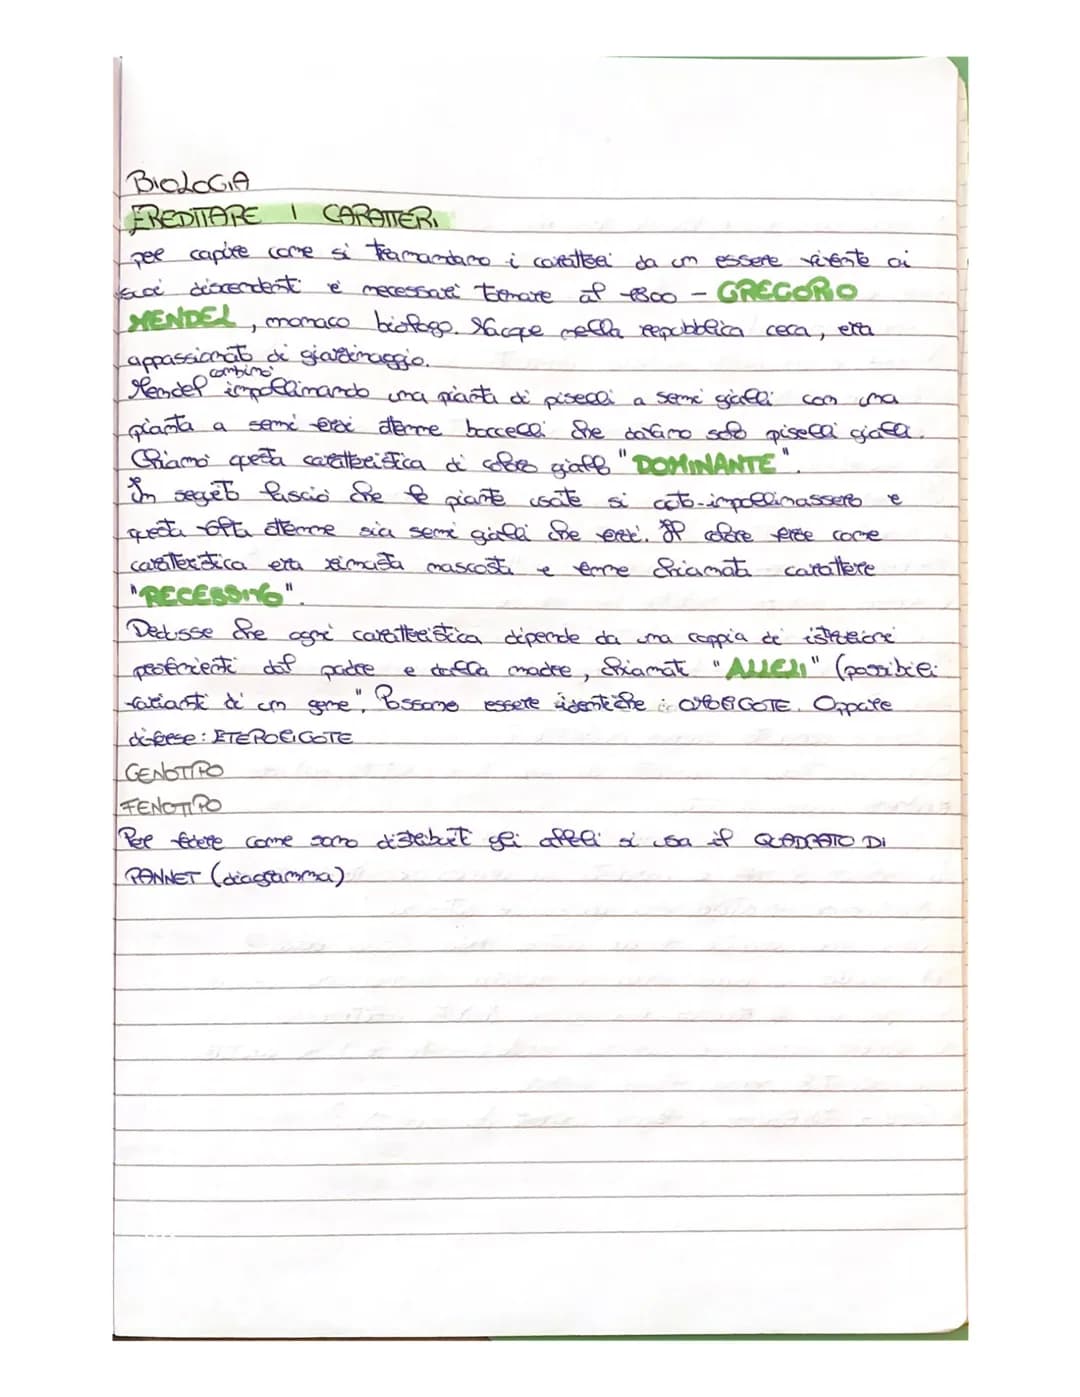 BIOLOGIA
EREDITARE I CARATTERI
per capire come si tramandano i caratteri da un essere vivente ai
suoi discendenti è necessari tornare al 1800 - GREGORIO
MENDEL, monaco biologo. Nacque nella repubblica ceca, era
appassionato di giardinaggio.
combinò
Mendel impollinando una pianta di piselli a semi gialli con una
pianta a semi verdi ottenne baccelli che davano solo piselli gialli.
Chiamò questa caratteristica di colore giallo "DOMINANTE".
In seguito lasciò che le piante usate si auto-impollinassero e
questa volta ottenne sia semi gialli che verdi. Il colore verde come
caratteristica era rimasta nascosta e venne chiamata carattere
"RECESSIVO".
Dedusse che ogni caratteristica dipende da una coppia di istruzioni
provenienti dal padre e dalla madre, chiamati "ALLELI" (possibili
varianti di un gene". Possono essere identiche: OMOZIGOTE. Oppure
diverse: ETEROZIGOTE
GENOTIPO
FENOTIPO
Per vedere come sono distribuiti gli alleli si usa il QUADRATO DI
PANNET (diagramma)